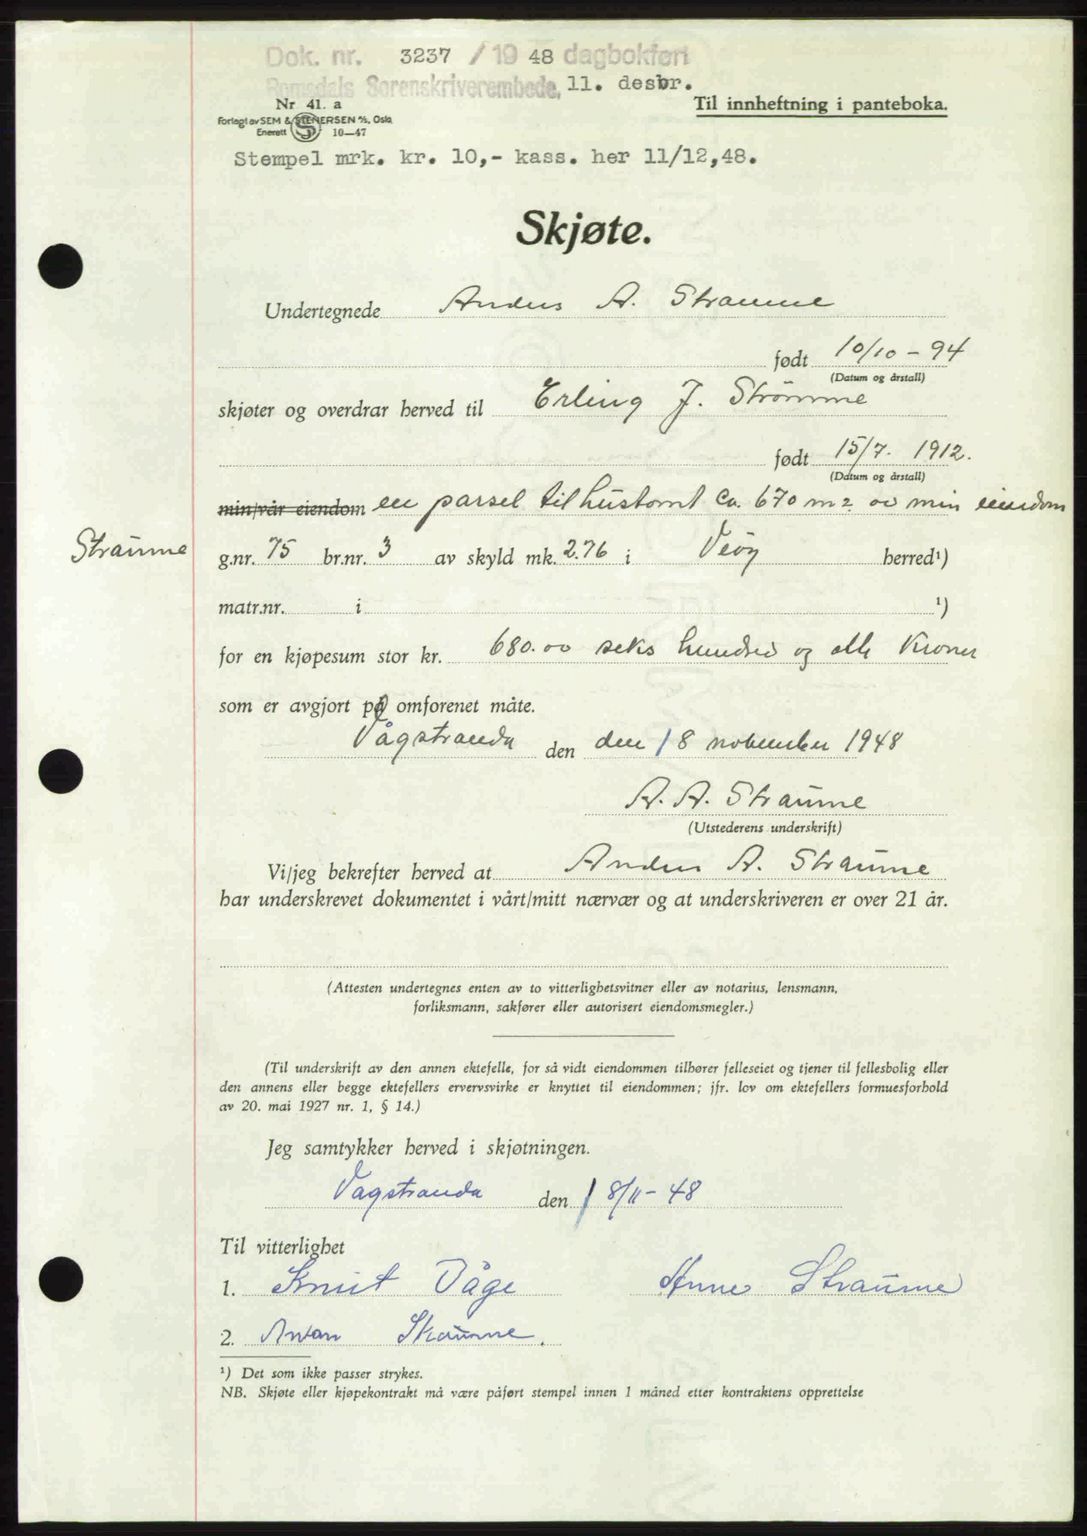 Dok. nr. 3237 / 19 48 dagbokført
Romsdals Sorenskriverembede, 11. desbr.
Nr 41. a
Til innheftning i panteboka.
Forlagt av SEM & STENERSEN A/S, Oslo
Enerett S 10—47
Stempel mrk. kr. 10,- kass. her 11/12,48.
Skjøte.
Undertegnede Anders A. Straume
født 10/10 - 94
(Datum og årstall)
skjøter og overdrar herved til Erling J. Strømme
født 15/7. 1912.
(Datum og årstall)
min/vår eiendom en parsel til hustomt ca. 670 m2 av min eiendom
Straume g.nr. 75 br.nr. 3 av skyld mk. 2.76 i Veøy herred¹)
matr.nr. i ¹)
for en kjøpesum stor kr. 680.00 seks hundred og otti Kroner
som er avgjort på omforenet måte.
Vågstranda den den 18 november 1948
A. A. Straume
(Utstederens underskrift)
Vi/jeg bekrefter herved at Anders A. Straume
har underskrevet dokumentet i vårt/mitt nærvær og at underskriveren er over 21 år.
(Attesten undertegnes enten av to vitterlighetsvitner eller av notarius, lensmann,
forliksmann, sakfører eller autorisert eiendomsmegler.)
(Til underskrift av den annen ektefelle, for så vidt eiendommen tilhører felleseiet og tjener til fellesbolig eller
den annens eller begge ektefellers ervervsvirke er knyttet til eiendommen; jfr. lov om ektefellers formuesforhold
av 20. mai 1927 nr. 1, § 14.)
Jeg samtykker herved i skjøtningen.
Vagstranda den 18/11- 48
Til vitterlighet
1. Knut Våge Anne Straume
2. Straume.
¹) Det som ikke passer strykes.
NB. Skjøte eller kjøpekontrakt må være påført stempel innen 1 måned etter kontraktens opprettelse